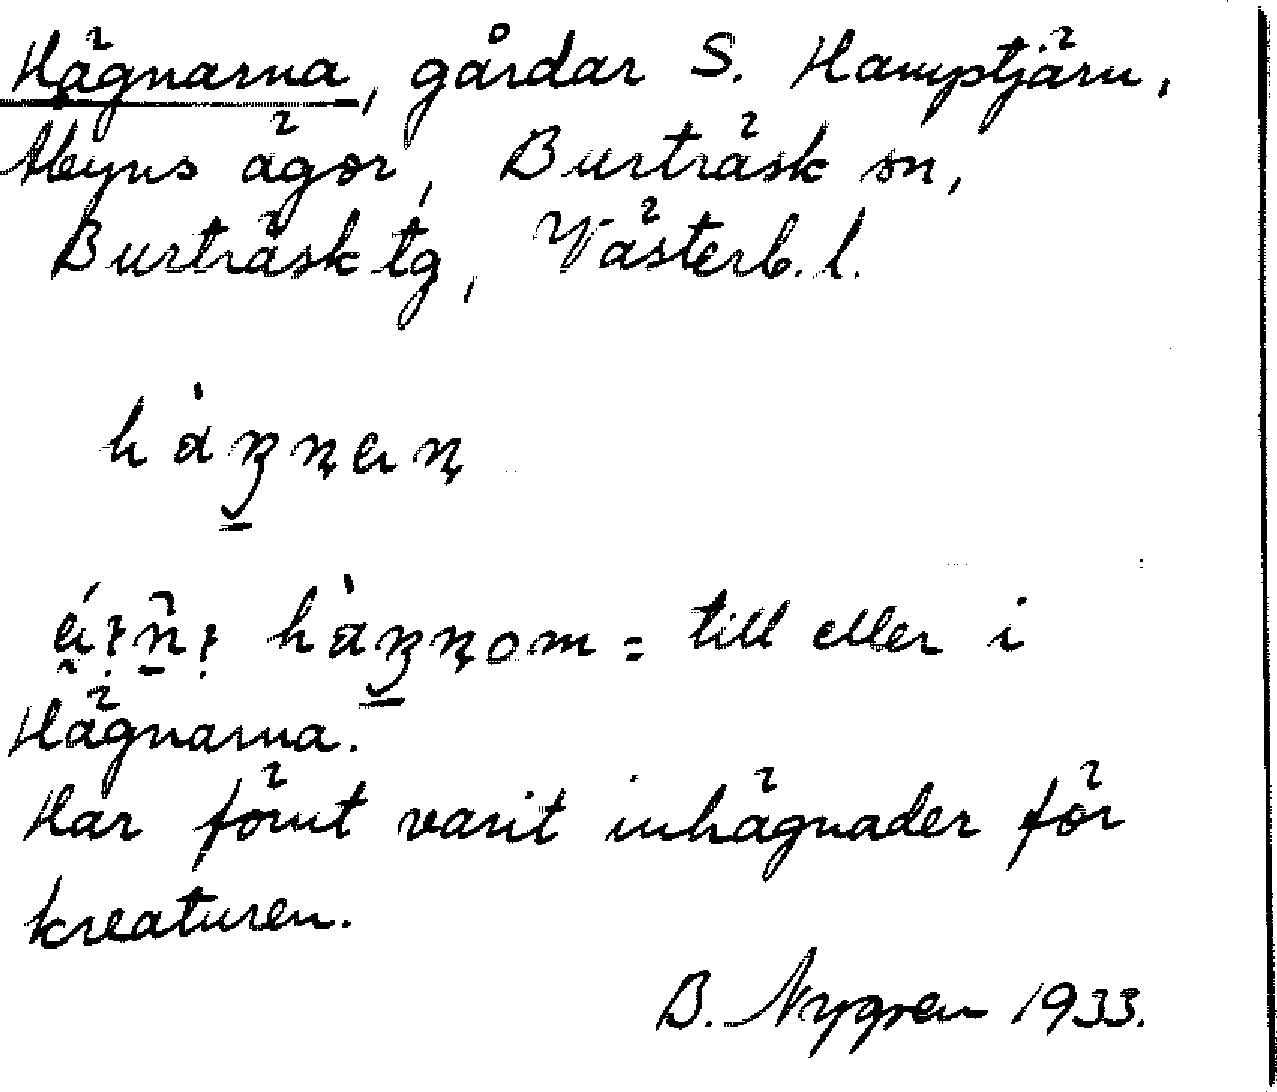 Hägnarna, gårdar S. Hamptjärn,
Åbyns ägor, Burträsk sn,
Burträsk tg, Västerb. l.
= till eller i
Hägnarna.
Har förut varit inhägnader för
kreaturen.
B. Nygren 1933.